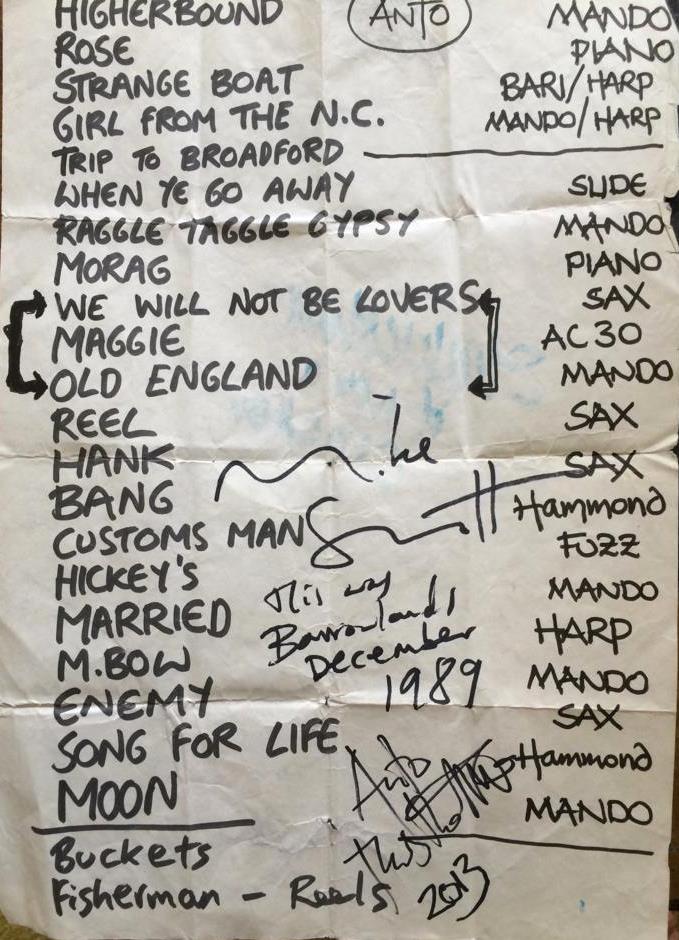 HIGHERBOUND ANTO MANDO
ROSE PIANO
STRANGE BOAT BARI/HARP
GIRL FROM THE N.C. MANDO/HARP
TRIP TO BROADFORD
WHEN YE GO AWAY SLIDE
RAGGLE TAGGLE GYPSY MANDO
MORAG PIANO
WE WILL NOT BE LOVERS SAX
MAGGIE AC30
OLD ENGLAND MANDO
REEL SAX
HANK SAX
BANG Hammond
CUSTOMS MAN FUZZ
HICKEY'S MANDO
MARRIED HARP
M.BOW MANDO
ENEMY SAX
SONG FOR LIFE Hammond
MOON MANDO
Buckets
Fisherman - Reels
Mike
Scott
This was
Barrowlands
December
1989
Anto
2013